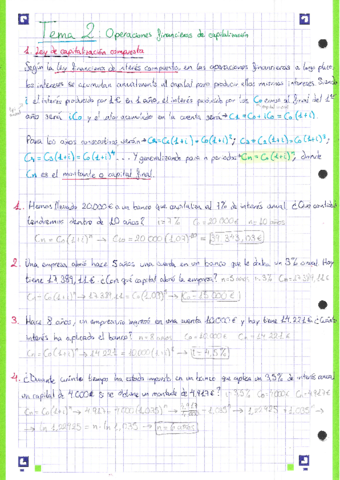 Tema 2: Operaciones financieras de capitalización
1. Ley de capitalización compuesta
Según la ley financiera de interés compuesto, en las operaciones financieras a largo plazo,
los intereses se acumulan anualmente al capital para producir ellos mismos intereses. Siendo
i el interés producido por 1€ en 1 año, el interés producido por los C₀ euros al final del 1er
año será iC₀ y el valor acumulado en la cuenta será → C₁ = C₀ + iC₀ = C₀(1+i)
Para los años sucesivos serán → C₂ = C₁(1+i) = C₀(1+i)²; C₃ = C₂(1+i) =
C₀(1+i)³... Y generalizando para n periodos → Cn = C₀(1+i)ⁿ, donde
Cn es el montante o capital final.
1. Hemos llevado 20.000€ a un banco que capitaliza al 7% de interés anual. ¿Qué
tendremos dentro de 10 años? i = 7% C₀ = 20.000€ n = 10 años
Cn = C₀(1+i)ⁿ → C₁₀ = 20.000(1,07)¹⁰ → 39.343,03€
2. Una empresa abrió hace 5 años una cuenta en un banco que le daba un 3% anual. Hoy
tiene 17.389,11€ ¿Con qué capital abrió la empresa? n = 5 años i = 3% Cn = 17.389,11€
Cn = C₀(1+i)ⁿ → 17.389,11 = C₀(1,03)⁵ → C₀ = 15.000€
3. Hace 8 años, un empresario ingresó en una cuenta 10.000€ y hoy tiene 14.221€ ¿Qué
interés ha aplicado el banco? n = 8 años C₀ = 10.000€ Cn = 14.221€
Cn = C₀(1+i)ⁿ → 14.221 = 10.000(1+i)⁸ → i = 4,5%
4. ¿Durante cuánto tiempo ha estado impuesto en un banco que aplica un 3,5% de interés anual
un capital de 4.000€ si se obtiene un montante de 4.917€? i = 3,5% C₀ = 4.000€ Cn = 4.917€
Cn = C₀(1+i)ⁿ → 4.917 = 4.000(1,035)ⁿ → 4.917/4.000 = 1,035ⁿ → 1,22925 = 1,035ⁿ →
→ ln 1,22925 = n · ln 1,035 → n = 6 años